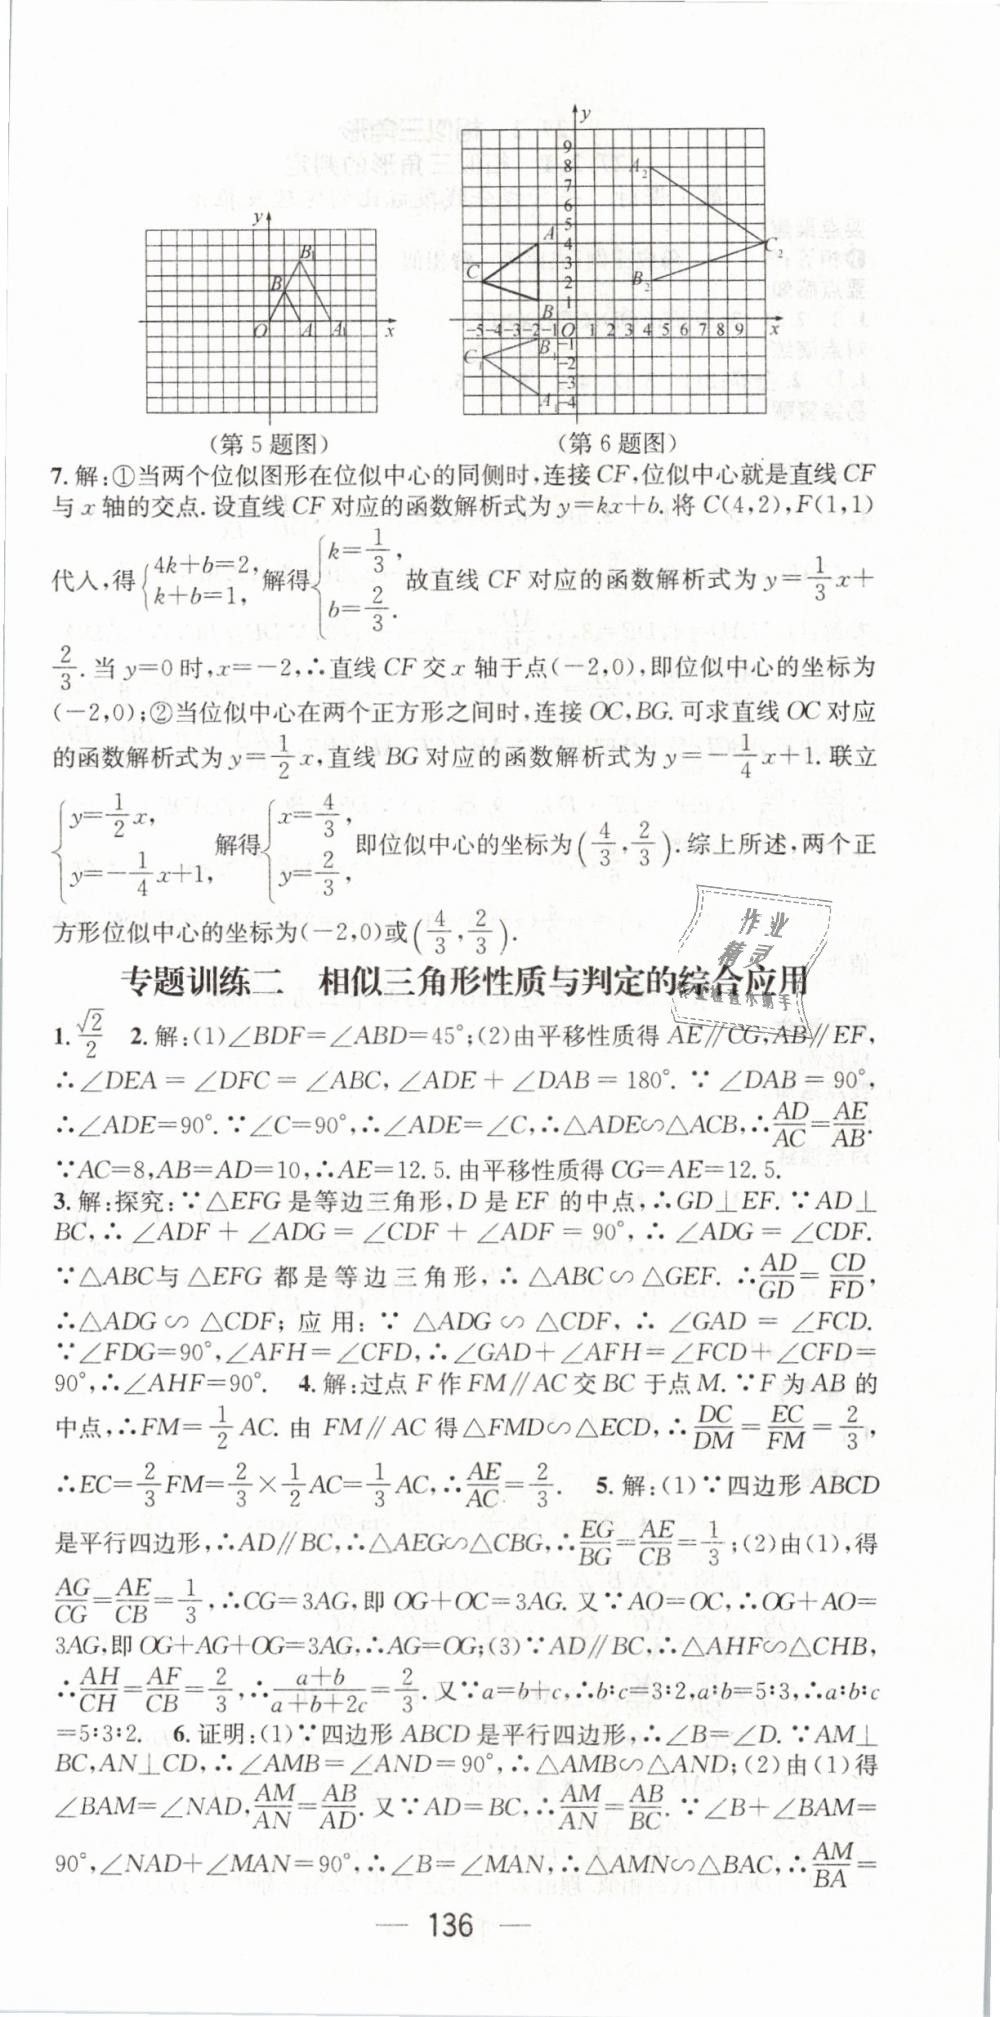 (第5题图)
(第6题图)
7.解:①当两个位似图形在位似中心的同侧时,连接CF,位似中心就是直线CF
与x轴的交点.设直线CF对应的函数解析式为y=kx+b.将C(4,2),F(1,1)
代入,得{4k+b=2, k+b=1, 解得{k=1/3, b=2/3. 故直线CF对应的函数解析式为y=1/3x+
2/3.当y=0时,x=-2,∴直线CF交x轴于点(-2,0),即位似中心的坐标为
(-2,0);②当位似中心在两个正方形之间时,连接OC,BG.可求直线OC对应
的函数解析式为y=1/2x,直线BG对应的函数解析式为y=-1/4x+1.联立
{y=1/2x, y=-1/4x+1, 解得{x=4/3, y=2/3, 即位似中心的坐标为(4/3,2/3).综上所述,两个正
方形位似中心的坐标为(-2,0)或(4/3,2/3).
专题训练二 相似三角形性质与判定的综合应用
1.√2/2 2.解:(1)∠BDF=∠ABD=45°;(2)由平移性质得AE∥CG,AB∥EF,
∴∠DEA=∠DFC=∠ABC,∠ADE+∠DAB=180°.∵∠DAB=90°,
∴∠ADE=90°.∵∠C=90°,∴∠ADE=∠C,∴△ADE∽△ACB,∴AD/AC=AE/AB.
∵AC=8,AB=AD=10,∴AE=12.5.由平移性质得CG=AE=12.5.
3.解:探究:∵△EFG是等边三角形,D是EF的中点,∴GD⊥EF.∵AD⊥
BC,∴∠ADF+∠ADG=∠CDF+∠ADF=90°,∴∠ADG=∠CDF.
∵△ABC与△EFG都是等边三角形,∴△ABC∽△GEF.∴AD/GD=CD/FD,
∴△ADG∽△CDF;应用:∵△ADG∽△CDF,∴∠GAD=∠FCD.
∵∠FDG=90°,∠AFH=∠CFD,∴∠GAD+∠AFH=∠FCD+∠CFD=
90°,∴∠AHF=90°. 4.解:过点F作FM∥AC交BC于点M.∵F为AB的
中点,∴FM=1/2AC.由FM∥AC得△FMD∽△ECD,∴DC/DM=EC/FM=2/3,
∴EC=2/3FM=2/3×1/2AC=1/3AC,∴AE/AC=2/3. 5.解:(1)∵四边形ABCD
是平行四边形,∴AD∥BC,∴△AEG∽△CBG,∴EG/BG=AE/CB=1/3;(2)由(1),得
AG/CG=AE/CB=1/3,∴CG=3AG,即OG+OC=3AG.又∵AO=OC,∴OG+AO=
3AG,即OG+AG+OG=3AG,∴AG=OG;(3)∵AD∥BC,∴△AHF∽△CHB,
∴AH/CH=AF/CB=2/3,∴(a+b)/(a+b+2c)=2/3.又∵a=b+c,∴b:c=3:2,a:b=5:3,∴a:b:c
=5:3:2. 6.证明:(1)∵四边形ABCD是平行四边形,∴∠B=∠D.∵AM⊥
BC,AN⊥CD,∴∠AMB=∠AND=90°,∴△AMB∽△AND;(2)由(1)得
∠BAM=∠NAD,AM/AN=AB/AD.又∵AD=BC,∴AM/AN=AB/BC.∵∠B+∠BAM=
90°,∠NAD+∠MAN=90°,∴∠B=∠MAN,∴△AMN∽△BAC,∴AM/BA=
— 136 —
作业
精灵